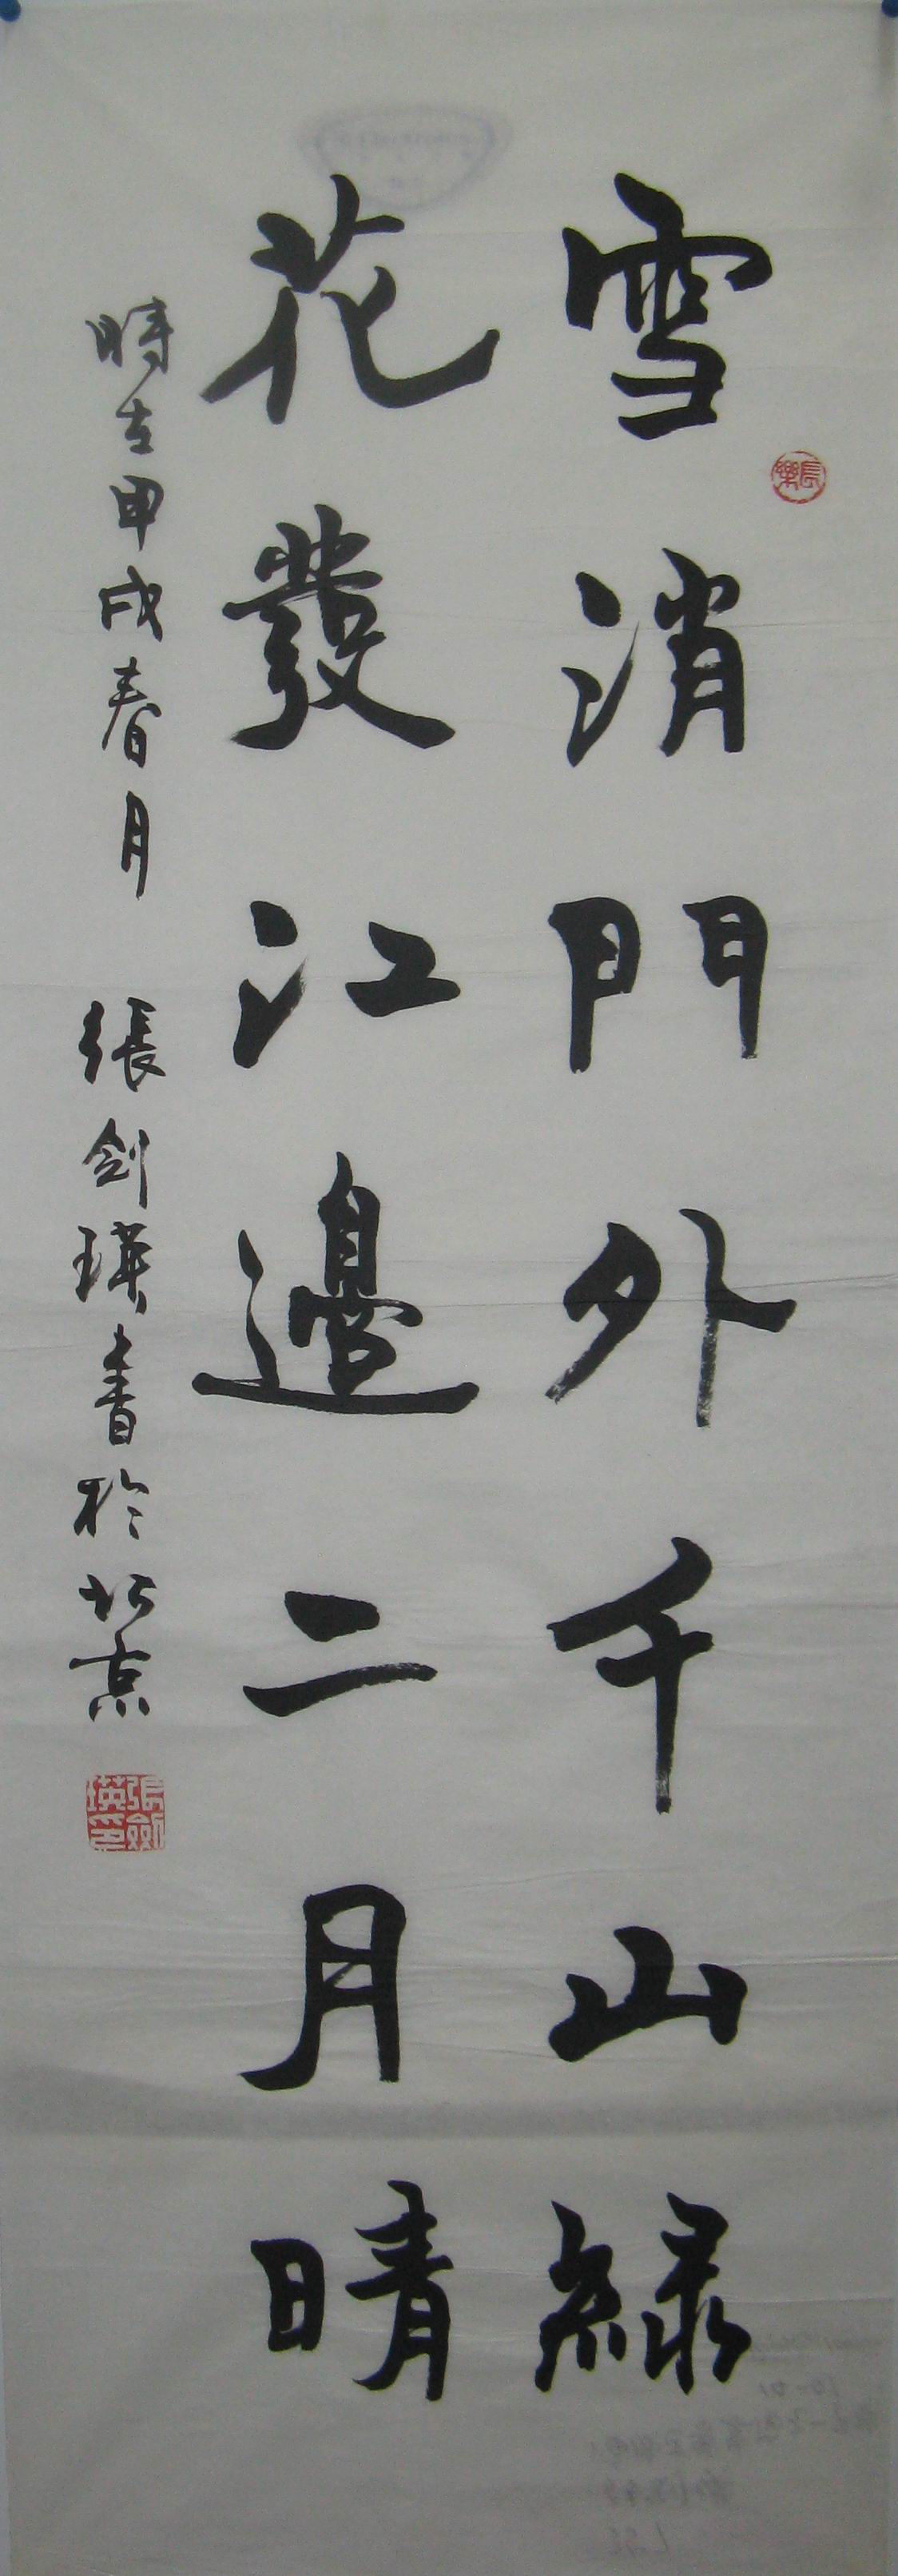 雪消門外千山綠
花發江邊二月晴
時在甲戌春月 張劍瑛書於北京
長樂
張劍瑛印